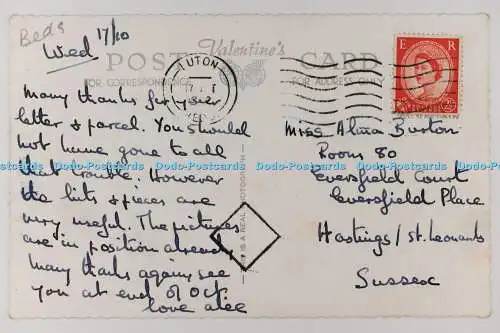 Beds
Wed 17/10
POST Valentine's CARD
FOR CORRESPONDENCE
FOR ADDRESS ONLY
LUTON
E R
Many thanks for your
letter & parcel. You should
not have gone to all
that trouble. However
the bits & pieces are
very useful. The pictures
are in position already
Many thanks again, see
you at end of Oct.
love
THIS IS A REAL PHOTOGRAPH
Miss Alma Burton
Room 80
Eversfield Court
Eversfield Place
Hastings/St. Leonards
Sussex
Past Postcards